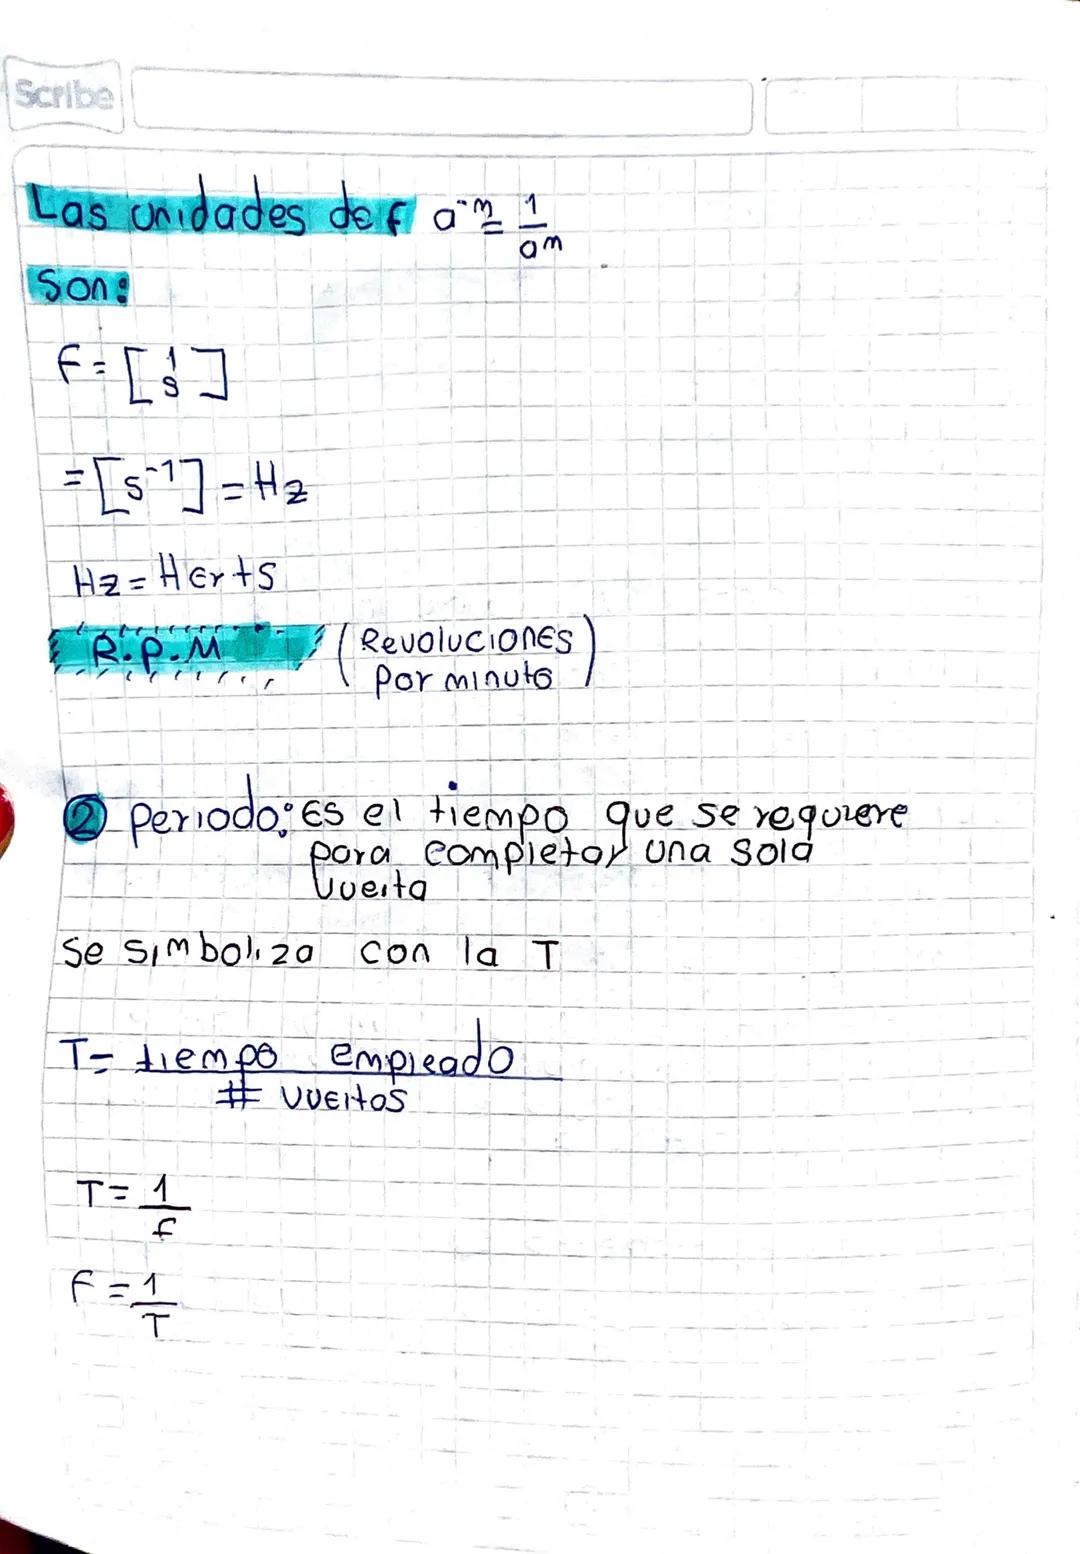 Scribe
Las unidades de f a⁻ᵐ = 1/aᵐ
Son:
F = [1/s]
= [s⁻¹] = Hz
Hz = Herts
R.P.M (Revoluciones
por minuto)
② periodo: Es el tiempo que se requiere
para completar una sola
vuelta
Se simboliza con la T
T = tiempo empleado
# vueltas
T = 1/f
F = 1/T